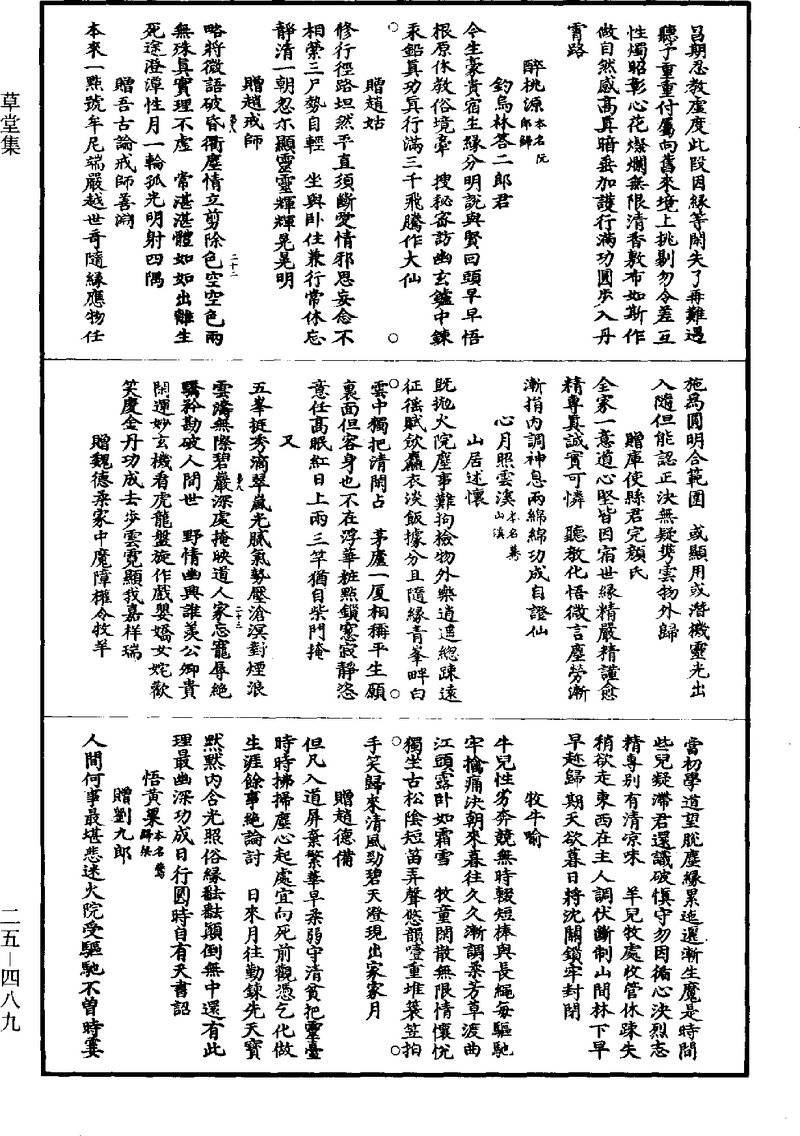 草堂集
二五—四八九
呂期忍教虛度此段因緣等閑失了再難遇
聽予重重付屬向舊來境上挑剔勿令差互
性燭昭彰心花燦爛無限清香敷布如斯作
做自然感高真暗垂加護行滿功圓步入丹
霄路
醉桃源本名阮郎歸
釣烏林荅二郎君
今生豪貴宿生緣分明說與賢回頭早早悟
根原休教俗境牽　搜秘密訪幽玄鑪中鍊
汞鉛真功真行滿三千飛騰作大仙
贈趙姑
修行徑路坦然平直須斷愛情邪思妄念不
相縈三尸勢自輕　坐與卧住兼行常休忘
靜清一朝忽尒顯靈靈輝輝晃晃明
贈趙戒師
略將微語破昏衢塵情立剪除色空空色兩
無殊真實理不虛　常湛湛體如如出離生
死途澄潭性月一輪孤光明射四隅
贈吾古論戒師善淵
本來一點號牟尼端嚴越世奇隨緣應物任
施為圓明合範圍　或顯用或潛機靈光出
入隨但能認正決無疑携雲物外歸
贈庫使縣君完顏氏
全家一意道心堅皆因宿世緣精嚴精謹愈
精專真誠實可憐　聽教化悟微言塵勞漸
漸捐內調神息兩綿綿功成自證仙
心月照雲溪本名驀山溪
山居述懷
既拋火院塵事難拘檢物外樂逍遥緫踈遠
征徭賦斂麤衣淡飯據分且隨緣青峯畔白
雲中獨把清閑占　茅廬一厦相稱平生願
裏面但容身也不在浮華粧點鎖窻寂靜恣
意任高眠紅日上兩三竿猶自柴門掩
又
五峯挺秀滴翠嵐光膩氣勢壓滄溟對煙浪
雲濤無際碧巖深處掩映道人家忘寵辱絕
驕矜勘破人間世　野情幽興誰羨公卿貴
閑運妙玄機看虎龍盤旋作戲嬰嬌女姹歡
笑慶金丹功成去步雲霓顯我嘉祥瑞
贈魏德柔家中魔障權令牧羊
當初學道望脫塵緣累迤邐漸生魔是時間
些兒疑滯君還識破慎守勿因循心決烈志
精專別有清凉味　羊兒牧處收管休踈失
稍欲走東西在主人調伏斷制山間林下早
早趂歸期天欲暮日將沈關鎖牢封閉
牧牛喻
牛兒性劣奔競無時輟短棒與長繩每驅馳
牢擒痛決朝來暮往久久漸調柔芳草渡曲
江頭露卧如霜雪　牧童閑散無限情懷恱
獨坐古松陰短笛弄聲悠韻噎重堆簑笠拍
手笑歸來清風勁碧天澄現出家家月
贈趙德備
但凡入道屏棄繁華早柔弱守清貧把靈臺
時時拂掃塵心起處宜向死前觀憑乞化做
生涯餘事絶論討　日來月往勤鍊先天寶
默默內含光照俗緣㪽㪽顛倒無中還有此
理最幽深功成日行圓時自有天書詔
贈劉九郎
人間何事最堪悲迷火院受驅馳不曾時霎